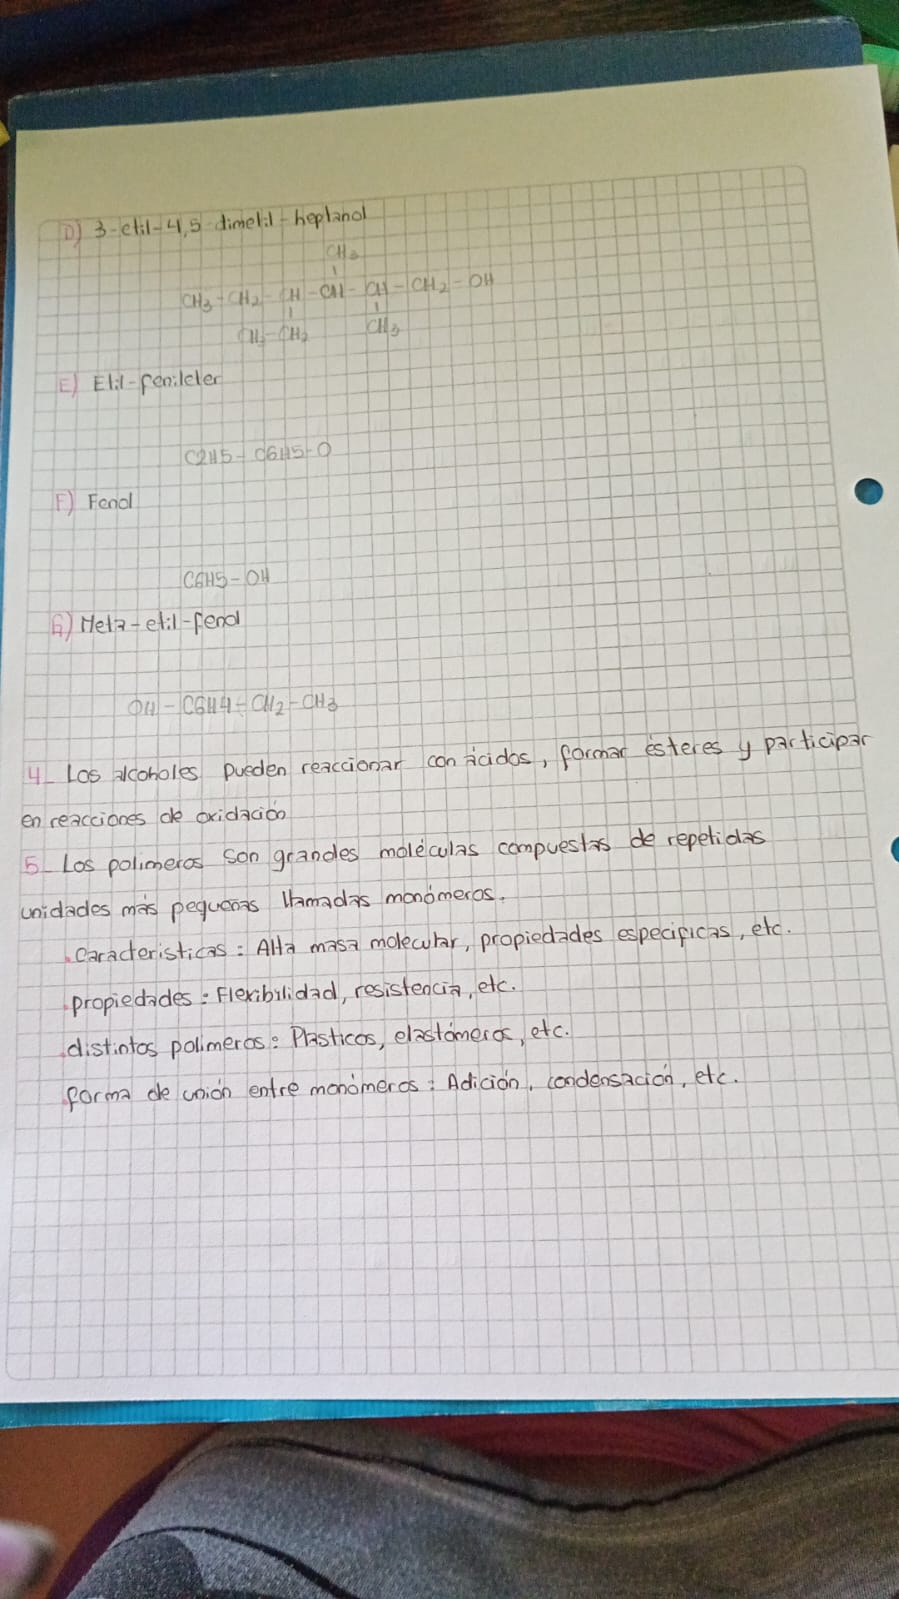 D) 3-etil-4,5-dimetil-heptanol
CH3
CH3-CH2-CH-CH-CH-CH2-OH
CH3-CH2 CH3
E) Etil-fenileter
C2H5-C6H5-O
F) Fenol
C6H5-OH
G) Meta-etil-fenol
OH-C6H4-CH2-CH3
4- Los alcoholes pueden reaccionar con ácidos, formar ésteres y participar
en reacciones de oxidación
5- Los polimeros son grandes moléculas compuestas de repetidas
unidades más pequeñas llamadas monómeros.
.Caracteristicas: Alta masa molecular, propiedades especificas, etc.
.propiedades: Flexibilidad, resistencia, etc.
.distintos polimeros: Plasticos, elastómeros, etc.
.forma de unión entre monómeros: Adición, condensación, etc.